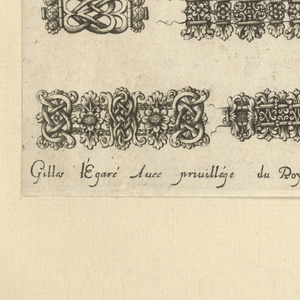 Gilles l'Egaré Auec priuillége du Roy